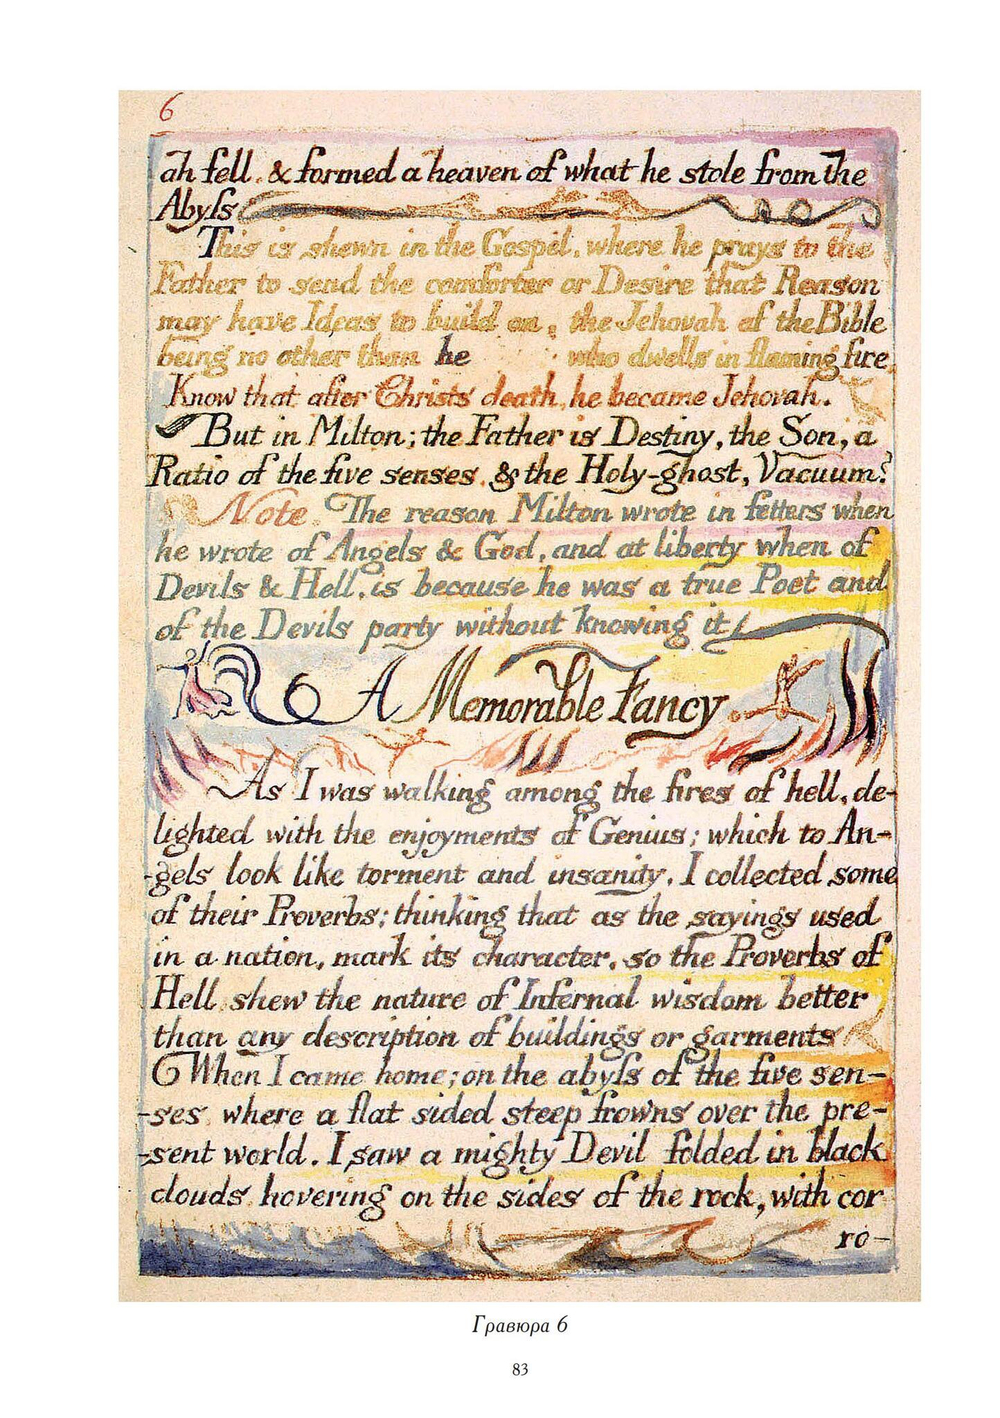 6
ah fell. & formed a heaven of what he stole from the
Abyss
This is shewn in the Gospel, where he prays to the
Father to send the comforter or Desire that Reason
may have Ideas to build on, the Jehovah of the Bible
being no other than he who dwells in flaming fire.
Know that after Christs death, he became Jehovah.
But in Milton; the Father is Destiny, the Son, a
Ratio of the five senses, & the Holy-ghost, Vacuum!
Note. The reason Milton wrote in fetters when
he wrote of Angels & God, and at liberty when of
Devils & Hell, is because he was a true Poet and
of the Devils party without knowing it
A Memorable Fancy
As I was walking among the fires of hell, de-
lighted with the enjoyments of Genius; which to An-
-gels look like torment and insanity. I collected some
of their Proverbs; thinking that as the sayings used
in a nation, mark its character, so the Proverbs of
Hell, shew the nature of Infernal wisdom better
than any description of buildings or garments
When I came home; on the abyss of the five sen-
-ses, where a flat sided steep frowns over the pre-
-sent world. I saw a mighty Devil folded in black
clouds, hovering on the sides of the rock, with cor
ro-
Гравюра 6
83